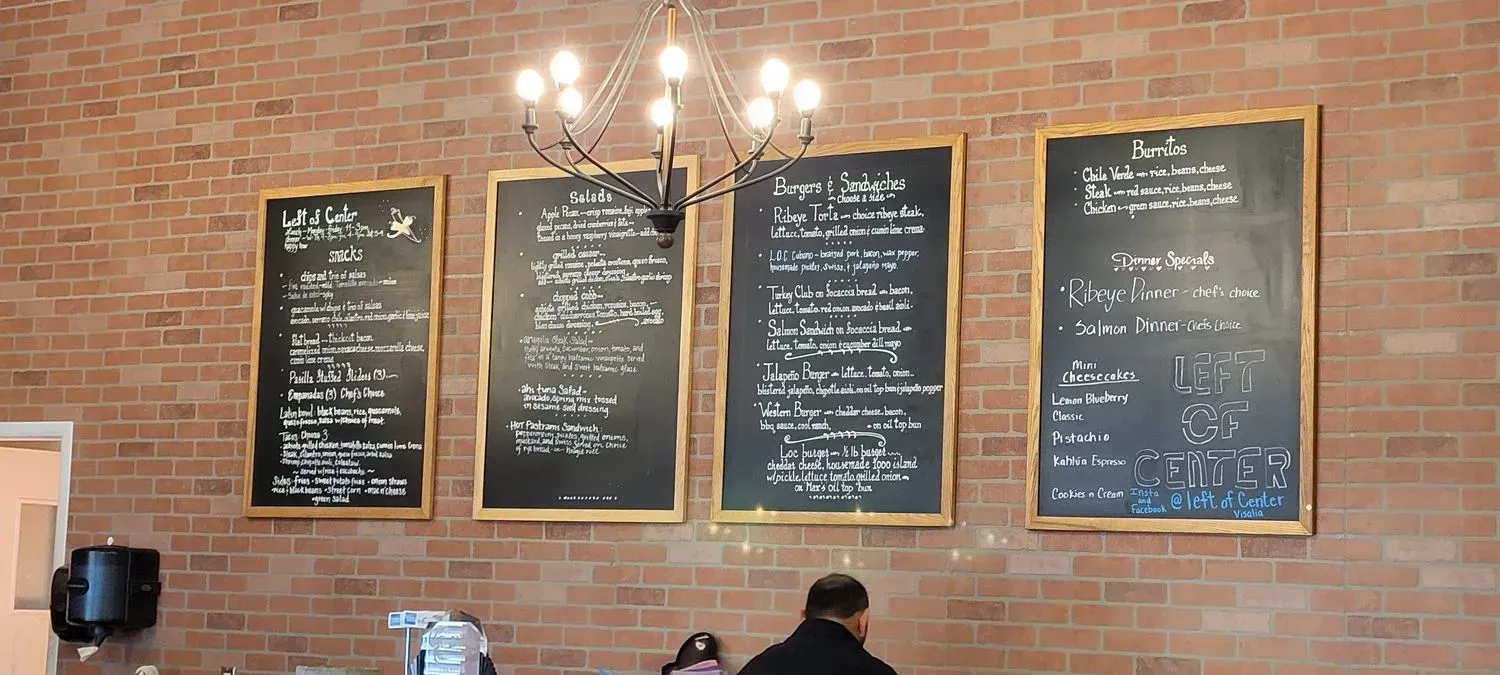 Left of Center
lunch - Monday-Friday 11-3pm
dinner
happy hour
snacks
chips and trio of salsas
guacamole w/chips & trio of salsas
avocado, serrano chile, cilantro, red onion, garlic & lime juice
Flat bread - thickcut bacon,
caramelized onion, oaxaca cheese, mozzarella cheese,
cumin lime crema
Pasilla Stuffed Sliders (3)
Empanadas (3) Chef's Choice
Latin bowl: black beans, rice, guacamole,
queso fresco, salsa w/choice of meat.
Tacos: Choose 3:
achiote grilled chicken, tomatillo salsa, cumin lime crema
Steak, cilantro, onion, queso fresco, arbol salsa
Shrimp, chipotle aioli, coleslaw
served w/rice & escabeche
Sides: fries • sweet potato fries • onion straws
rice & black beans • Street corn • mac n' cheese
• green salad
Salads
Apple Pecan - crisp romaine, fuji apples,
glazed pecans, dried cranberries & feta
tossed in a honey raspberry vinaigrette
grilled caesar
lightly grilled romaine, polenta croutons, queso fresco,
chopped cobb
achiote grilled chicken, romaine, bacon,
cherry tomatoes, hard boiled egg,
bleu cheese dressing, avocado
arugula Steak Salad
cucumber, onion, tomato, and
feta in a tangy balsamic vinaigrette served
with steak, and sweet balsamic glaze
ahi tuna Salad -
avocado, spring mix tossed
in sesame seed dressing
Hot Pastrami Sandwich:
pepperoncini, pickles, grilled onions,
mustard, and swiss served on choice
of rye bread - or - hoagie roll
Burgers & Sandwiches
choose a side
Ribeye Torta - choice ribeye steak,
lettuce, tomato, grilled onion & cumin lime crema
L.O.C Cubano - braised pork, bacon, wax pepper,
housemade pickles, swiss, & jalapeño mayo.
Turkey Club on focaccia bread - bacon,
lettuce, tomato, red onion, avocado & basil aioli.
Salmon Sandwich on focaccia bread -
lettuce, tomato, onion & cucumber dill mayo
Jalapeño Burger - lettuce, tomato, onion,
blistered jalapeño, chipotle aioli, on oil top bun & jalapeño popper
Western Burger - cheddar cheese, bacon,
bbq sauce, cool ranch, on oil top bun
Loc burger - 1/2 lb burger
cheddar cheese, housemade 1000 island
w/pickle, lettuce, tomato, grilled onion
on Max's oil top bun
Burritos
Chile Verde - rice, beans, cheese
Steak - red sauce, rice, beans, cheese
Chicken - green sauce, rice, beans, cheese
Dinner Specials
Ribeye Dinner - chef's choice
Salmon Dinner - Chefs Choice
Mini
Cheesecakes
Lemon Blueberry
Classic
Pistachio
Kahlúa Espresso
Cookies n Cream
LEFT
OF
CENTER
Insta
and
Facebook
@ left of Center
Visalia